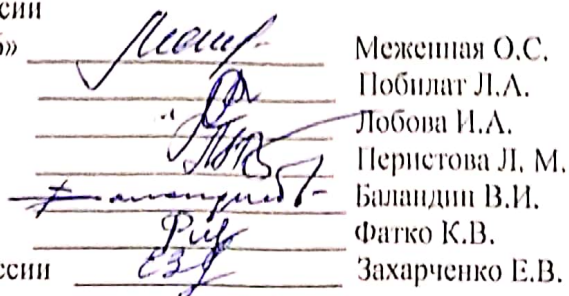 сии
б»
Меженная О.С.
Побилат Л.А.
Лобова И.А.
Перистова Л. М.
Баландин В.И.
Фатко К.В.
ссии Захарченко Е.В.